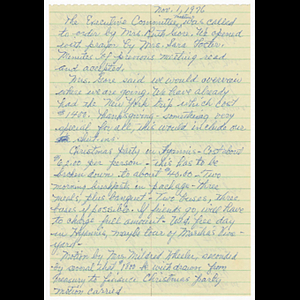 Nov. 1, 1976
The Executive Committee meeting was called
to order by Mrs. Ruth Gore. We opened
with prayer by Mrs. Sara
Minutes of previous meeting read
and accepted.
Mrs. Gore said we would overview
where we are going. We have already
had the New York trip which cost
$1400. Thanksgiving - something very
special for all, this would include our
shut ins.
Christmas Party in Hyannis - Cost about
per person - this has to be
broken down to about $40.00 - Two
morning breakfasts in package - three
meals, plus banquet - Two buses, three
buses if possible. If friends go, will have
to charge full amount. Sat. free day
in Hyannis, maybe tour of Martha's Vine-
yard -
Motion by Mrs. Mildred Wheeler, seconded
by several that be withdrawn from
treasury to finance Christmas Party
Motion carried